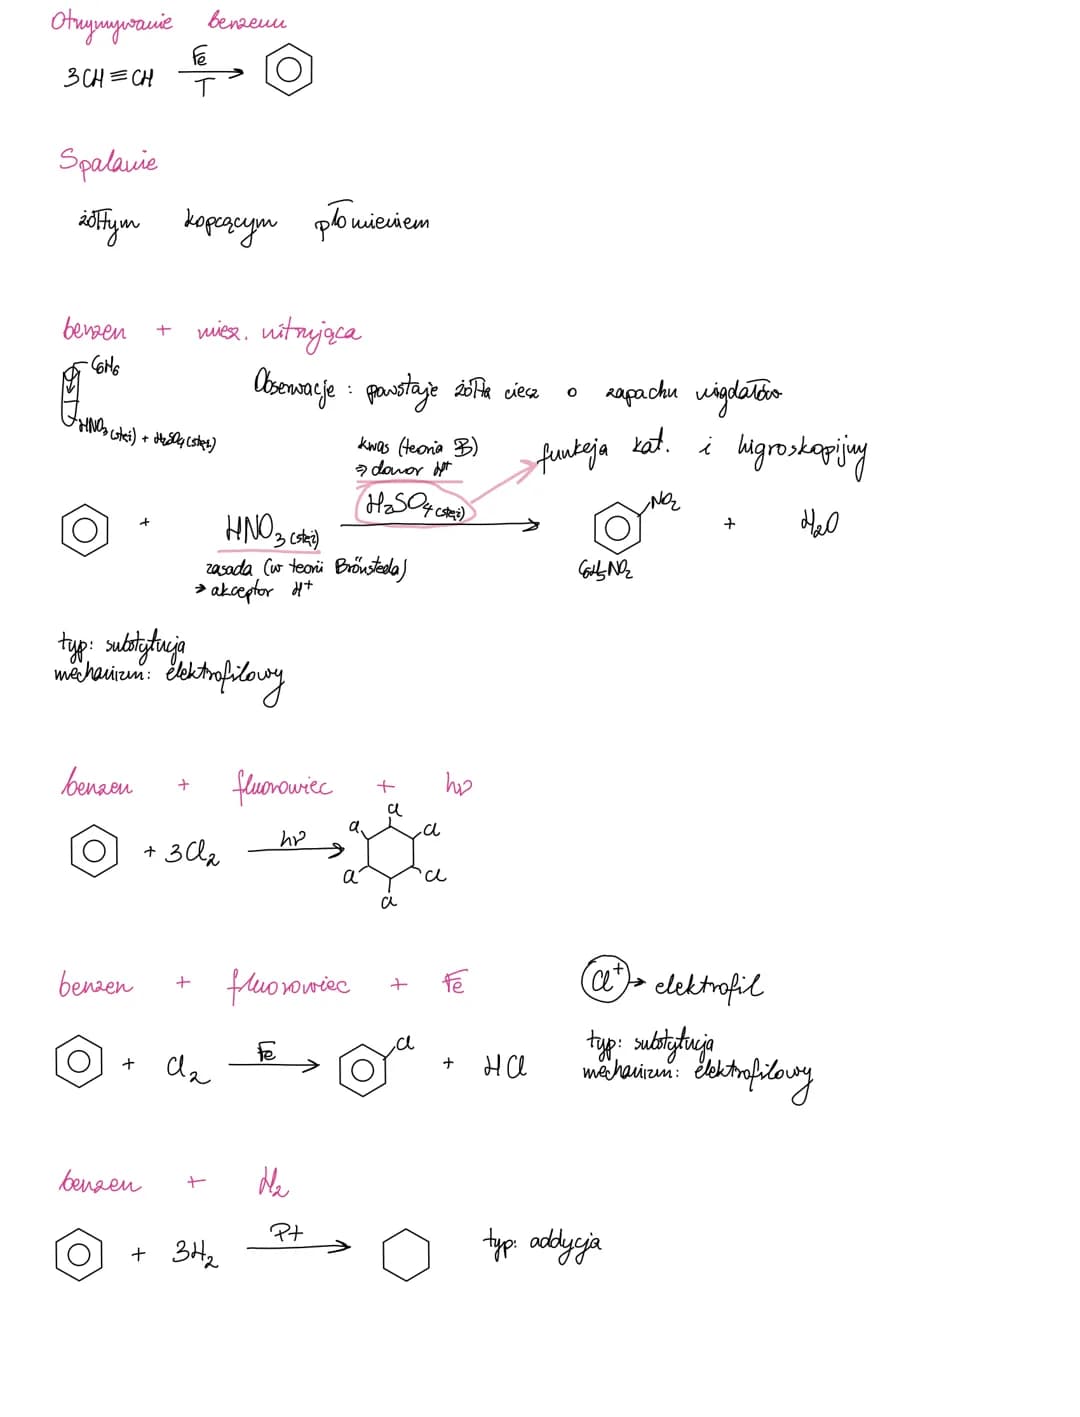 Otrzymywanie benzenu
3CH≡CH Fe T
Spalanie
żółtym kopcącym płomieniem
benzen + miesz. nitrująca
C6H6
Obserwacje: powstaje żółta ciecz o zapachu migdałów
HNO3 (stęż) + H2SO4 (stęż)
kwas (teoria B)
→ donor H+
funkcja kat. i higroskopijny
H2SO4 (stęż)
+ HNO3 (stęż) NO2 + H2O
zasada (w teorii Brönsteda)
C6H5NO2
→ akceptor H+
typ: substytucja
mechanizm: elektrofilowy
benzen + fluorowiec + hν
+ 3Cl2 hν Cl Cl Cl Cl Cl Cl
benzen + fluorowiec + Fe
Cl+ → elektrofil
+ Cl2 Fe Cl + HCl
typ: substytucja
mechanizm: elektrofilowy
benzen + H2
+ 3H2 Pt
typ: addycja